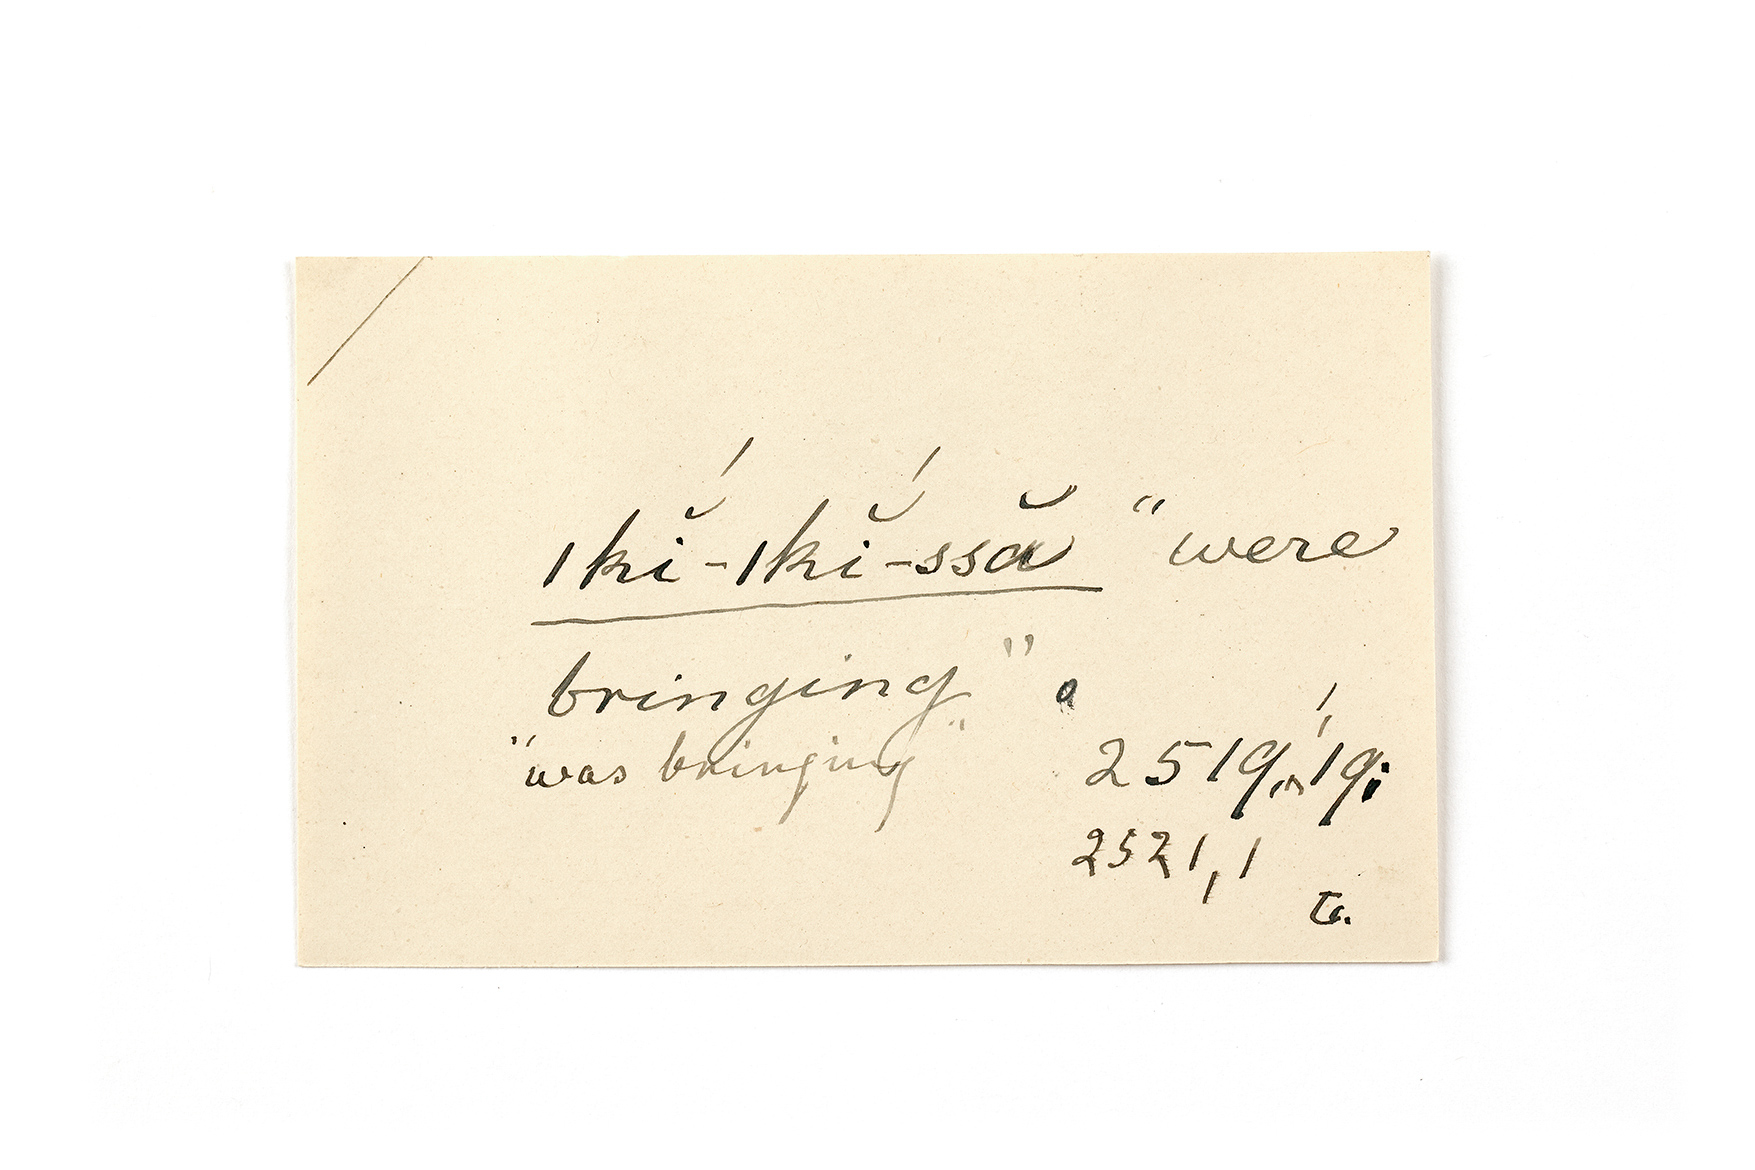 ıkĭ́-ıkĭ́-ssă "were
bringing".
"was bringing" 2519, 19;
2521, 1